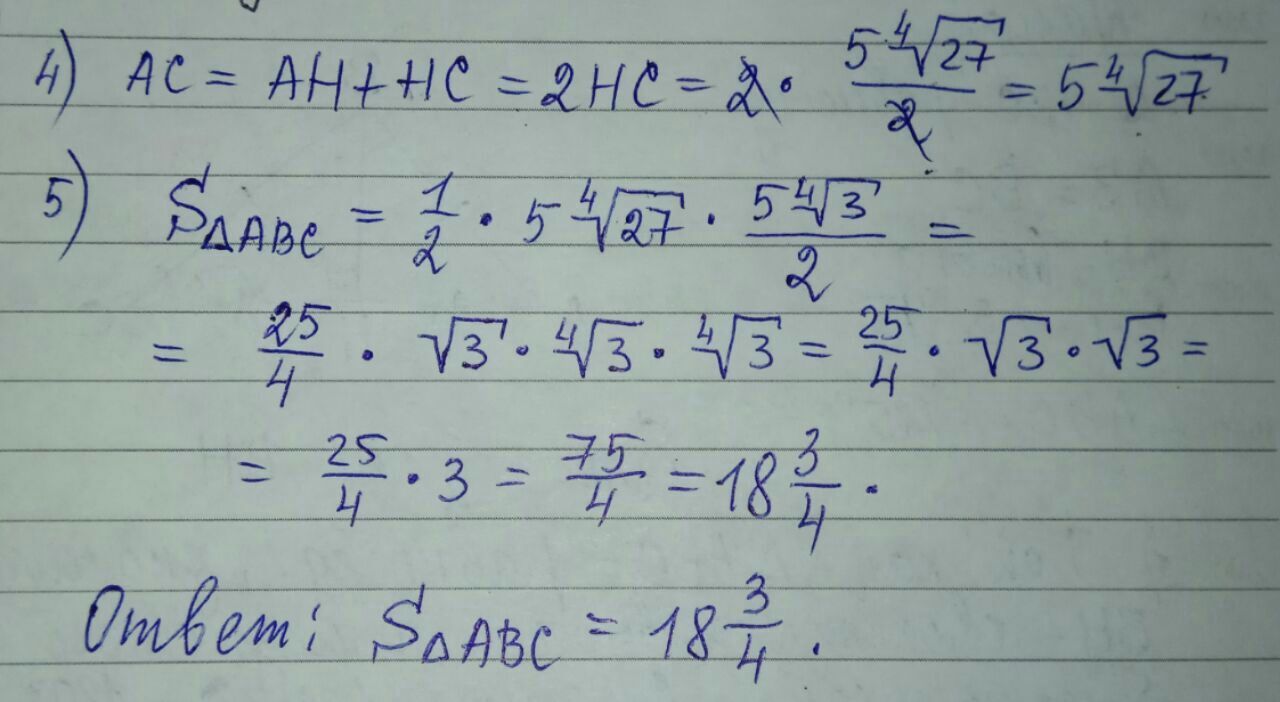 4) AC = AH + HC = 2HC = 2 · 5∜27/2 = 5∜27
5) S△ABC = 1/2 · 5∜27 · 5∜3/2 =
= 25/4 · √3 · ∜3 · ∜3 = 25/4 · √3 · √3 =
= 25/4 · 3 = 75/4 = 18 3/4 .
Ответ: S△ABC = 18 3/4 .